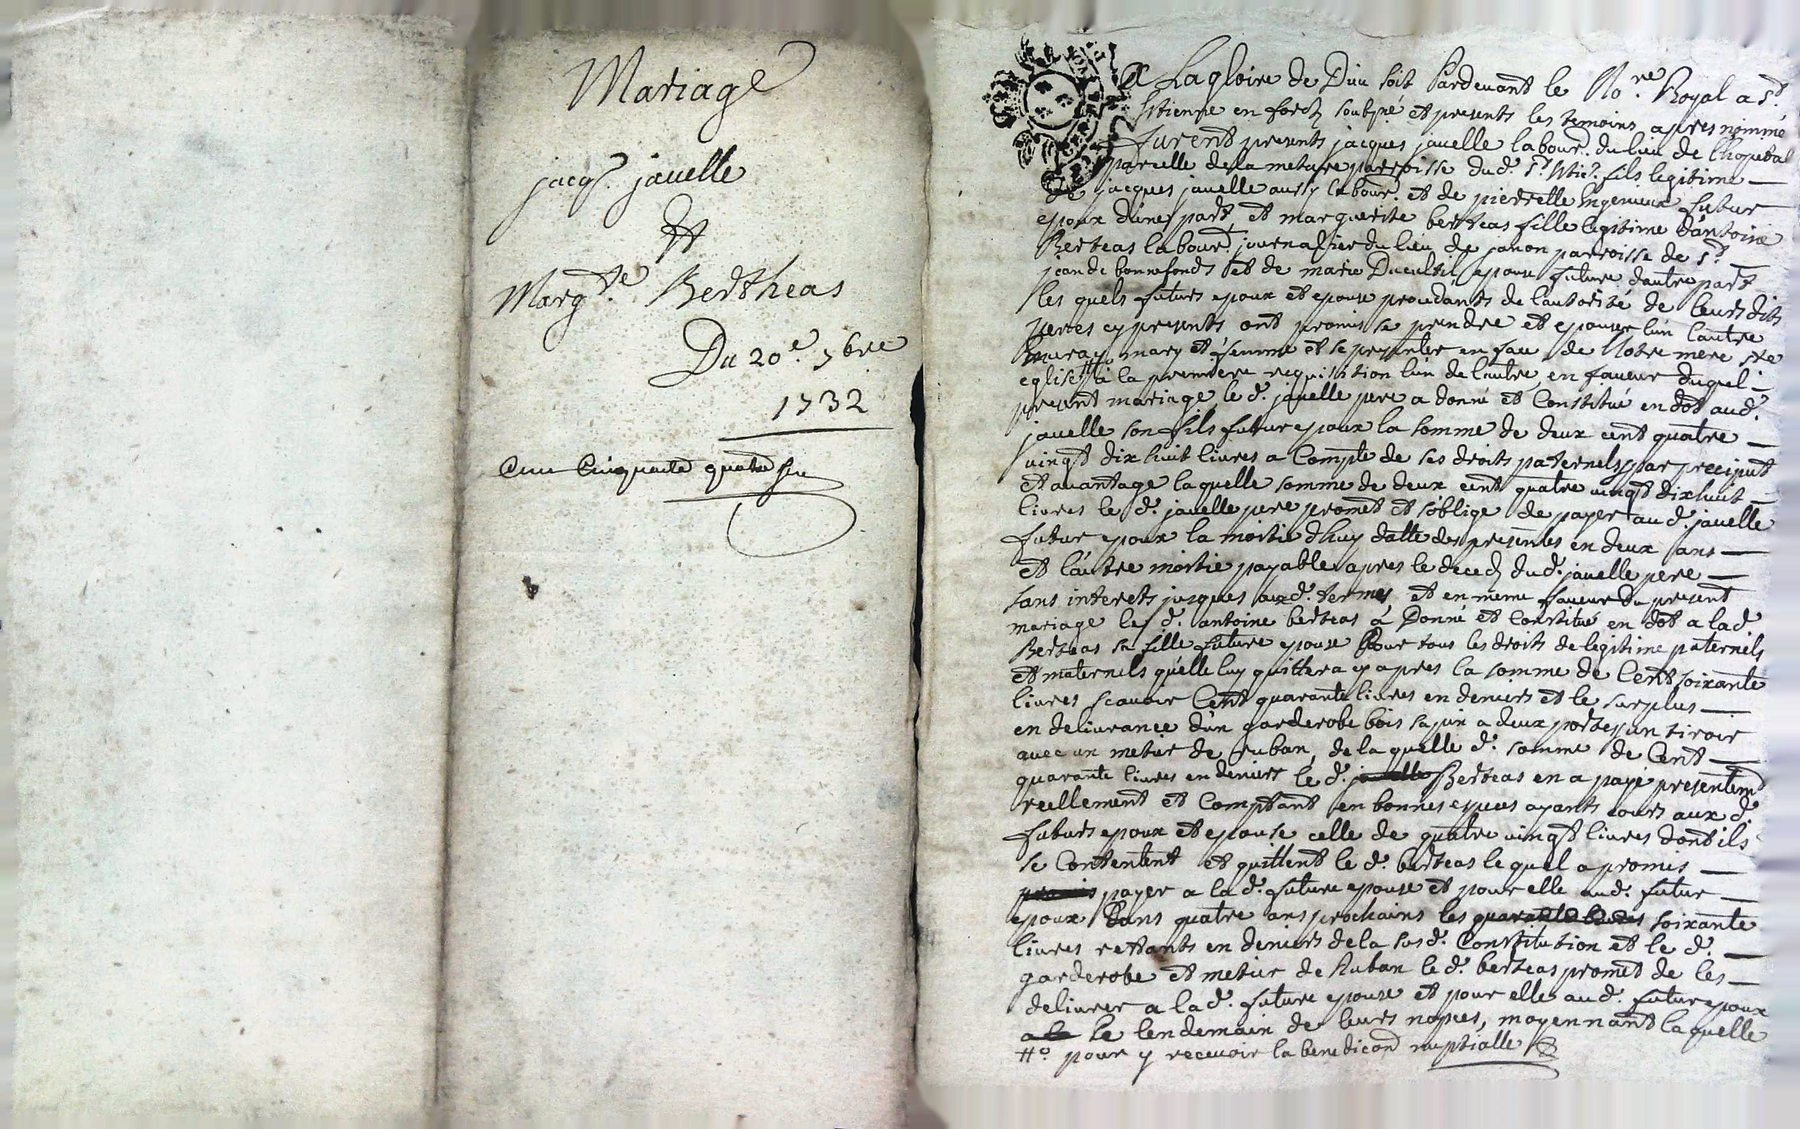 Mariage
jacq.s javelle
Et
Marg.te Bertheas
Du 20.e 7bre
1732
Cinquante quatre
A La gloire de Dieu soit Pardevant le No.re Royal a S.t
Etienne en forez soubsné et presents les temoins apres nommé
furent presents jacques javelle labour.r du lieu de lhopital
parcelle de la metare parroisse dud. S.t Etie.e fils legitime
de jacques javelle aussy labour.r et de pierrette Ingenieux futur
epoux dúne part et marguerite berteas fille legitime dantoine
Berteas labour.r journalier du lieu de janon parroisse de S.t
jean de bonnefonds et de marie epouse future dautre part
les quels futurs epoux et epouse procedants de lautorité de leurs dits
peres cy presents ont promis se prendre et epouser lún lautre
en vray mary et femme et se presenter en face de Notre mere ste
eglise # à la premiere requisition lún de lautre, en faveur duquel
present mariage, le d. javelle pere a donné et Constitué en dot aud.
javelle son fils futur epoux la somme de deux cent quatre
vingt dix huit livres a Compte de ses droits paternels par preciput
et avantage laquelle somme de deux cent quatre vingt dixhuit
livres le d. javelle pere promet et s'oblige de payer aud. javelle
futur epoux la moitié dhuy datte des presentes en deux ans
et l'autre moitié payable apres le deced dud. javelle pere
sans interets jusques auxd. termes et en meme faveur du present
mariage le d. antoine berteas à Donné et Constitué en dot a lad.
Berteas sa fille future epouse Pour tous les droits de legitime paternels
et maternels qu'elle luy quittera cy apres la somme de Cent soixante
livres scavoir Cent quarante livres en deniers et le surplus
en delivrance dún garderobe bois sapin a deux portes, un tiroir
avec un metier de ruban, de la quelle d. somme de Cent
quarante livres en deniers le d. javelle Berteas en a payé presentem.t
reellement et Comptant en bonnes especes ayants cours aux d.
futurs epoux et epouse celle de quatre vingt livres dont ils
se Contentent et quittent le d. berteas le quel a promis
promis payer a la d. future epouse et pour elle aud. futur
epoux Dans quatre ans prochains les quarante livres soixante
livres restants en deniers de la susd. Constitution et le d.
garderobe et metier de Ruban le d. berteas promet de les
delivrer a la d. future epouse et pour elle aud. futur epoux
a le le lendemain de leurs nopces, moyennant la quelle
#° pour y recevoir la benediĉaon nuptialle